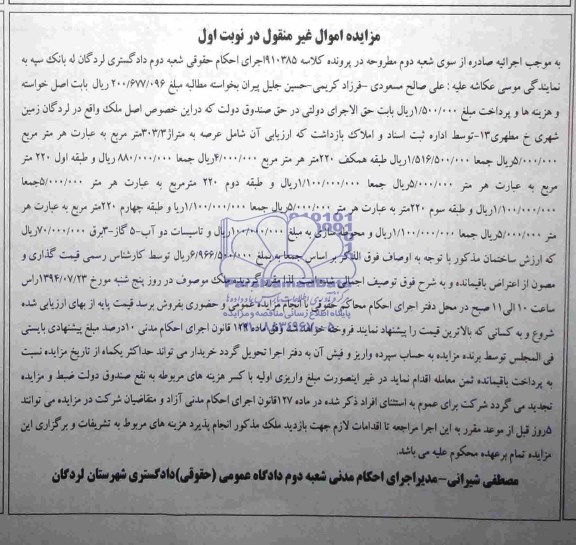 مزایده اموال غیر منقول در نوبت اول
به موجب اجرائیه صادره از سوی شعبه دوم مطروحه در پرونده کلاسه ۹۱۰۳۸۵اجرای احکام حقوقی شعبه دوم دادگستری لردگان له بانک سپه به
نمایندگی موسی عکاشه علیه : علی صالح مسعودی -فرزاد کریمی-حسین جلیل پیران بخواسته مطالبه مبلغ ۲۰۰/۶۷۷/۰۹۶ ریال بابت اصل خواسته
و هزینه ها و پرداخت مبلغ ۱/۵۰۰/۰۰۰ریال بابت حق الاجرای دولتی در حق صندوق دولت که دراین خصوص اصل ملک واقع در لردگان زمین
شهری خ مطهری۱۳-توسط اداره ثبت اسناد و املاک بازداشت که ارزیابی آن شامل عرصه به متراژ۳۰۳/۳متر مربع به عبارت هر متر مربع
۵/۰۰۰/۰۰۰ریال جمعا ۱/۵۱۶/۵۰۰/۰۰۰ریال طبقه همکف ۲۲۰متر هر متر مربع ۴/۰۰۰/۰۰۰ریال جمعا ۸۸۰/۰۰۰/۰۰۰ ریال و طبقه اول ۲۲۰ متر
مربع به عبارت هر متر ۵/۰۰۰/۰۰۰ریال جمعا ۱/۱۰۰/۰۰۰/۰۰۰ریال و طبقه دوم ۲۲۰ مترمربع به عبارت هر متر ۵/۰۰۰/۰۰۰جمعا
۱/۱۰۰/۰۰۰/۰۰۰ریال و طبقه سوم ۲۲۰متر به عبارت هر متر ۵/۰۰۰/۰۰۰ریال جمعا ۱/۱۰۰/۰۰۰/۰۰۰ریا و طبقه چهارم ۲۲۰متر مربع به عبارت هر
متر ۵/۰۰۰/۰۰۰ریال جمعا ۱/۱۰۰/۰۰۰/۰۰۰ریال و محوطه سازی به مبلغ ۱۰۰/۰۰۰/۰۰۰ریال و تاسیسات دو آب-۵ گاز-۳برق ۷۰/۰۰۰/۰۰۰ریال
که ارزش ساختمان مذکور با توجه به اوصاف فوق الذکر بر اساس جمعا به مبلغ ۶/۹۶۶/۵۰۰/۰۰۰ریال توسط کارشناس رسمی قیمت گذاری و
مصون از اعتراض باقیمانده و به شرح فوق توصیف اجمالی شده است لذا مقرر گردید ملک موصوف در روز پنج شنبه مورخ ۱۳۹۴/۰۷/۲۳راس
ساعت ۱۰الی ۱۱ صبح در محل دفتر اجرای احکام محاکم حقوقی با انجام مزایده عمومی و حضوری بفروش برسد قیمت پایه از بهای ارزیابی شده
شروع و به کسانی که بالاترین قیمت را پیشنهاد نمایند فروخته خواهد شد وفق ماده ۱۲۹ قانون اجرای احکام مدنی ۱۰درصد مبلغ پیشنهادی بایستی
فی المجلس توسط برنده مزایده به حساب سپرده واریز و فیش آن به دفتر اجرا تحویل گردد خریدار می تواند حداکثر یکماه از تاریخ مزایده نسبت
به پرداخت باقیمانده ثمن معامله اقدام نماید در غیر اینصورت مبلغ واریزی اولیه با کسر هزینه های مربوطه به نفع صندوق دولت ضبط و مزایده
تجدید می گردد شرکت برای عموم به استثنای افراد ذکر شده در ماده ۱۲۷قانون اجرای احکام مدنی آزاد و متقاضیان شرکت در مزایده می توانند
۵روز قبل از موعد مقرر به این اجرا مراجعه تا اقدامات لازم جهت بازدید ملک مذکور انجام پذیرد هزینه های مربوط به تشریفات و برگزاری این
مزایده تمام برعهده محکوم علیه می باشد.
مصطفی شیرانی-مدیراجرای احکام مدنی شعبه دوم دادگاه عمومی (حقوقی)دادگستری شهرستان لردگان